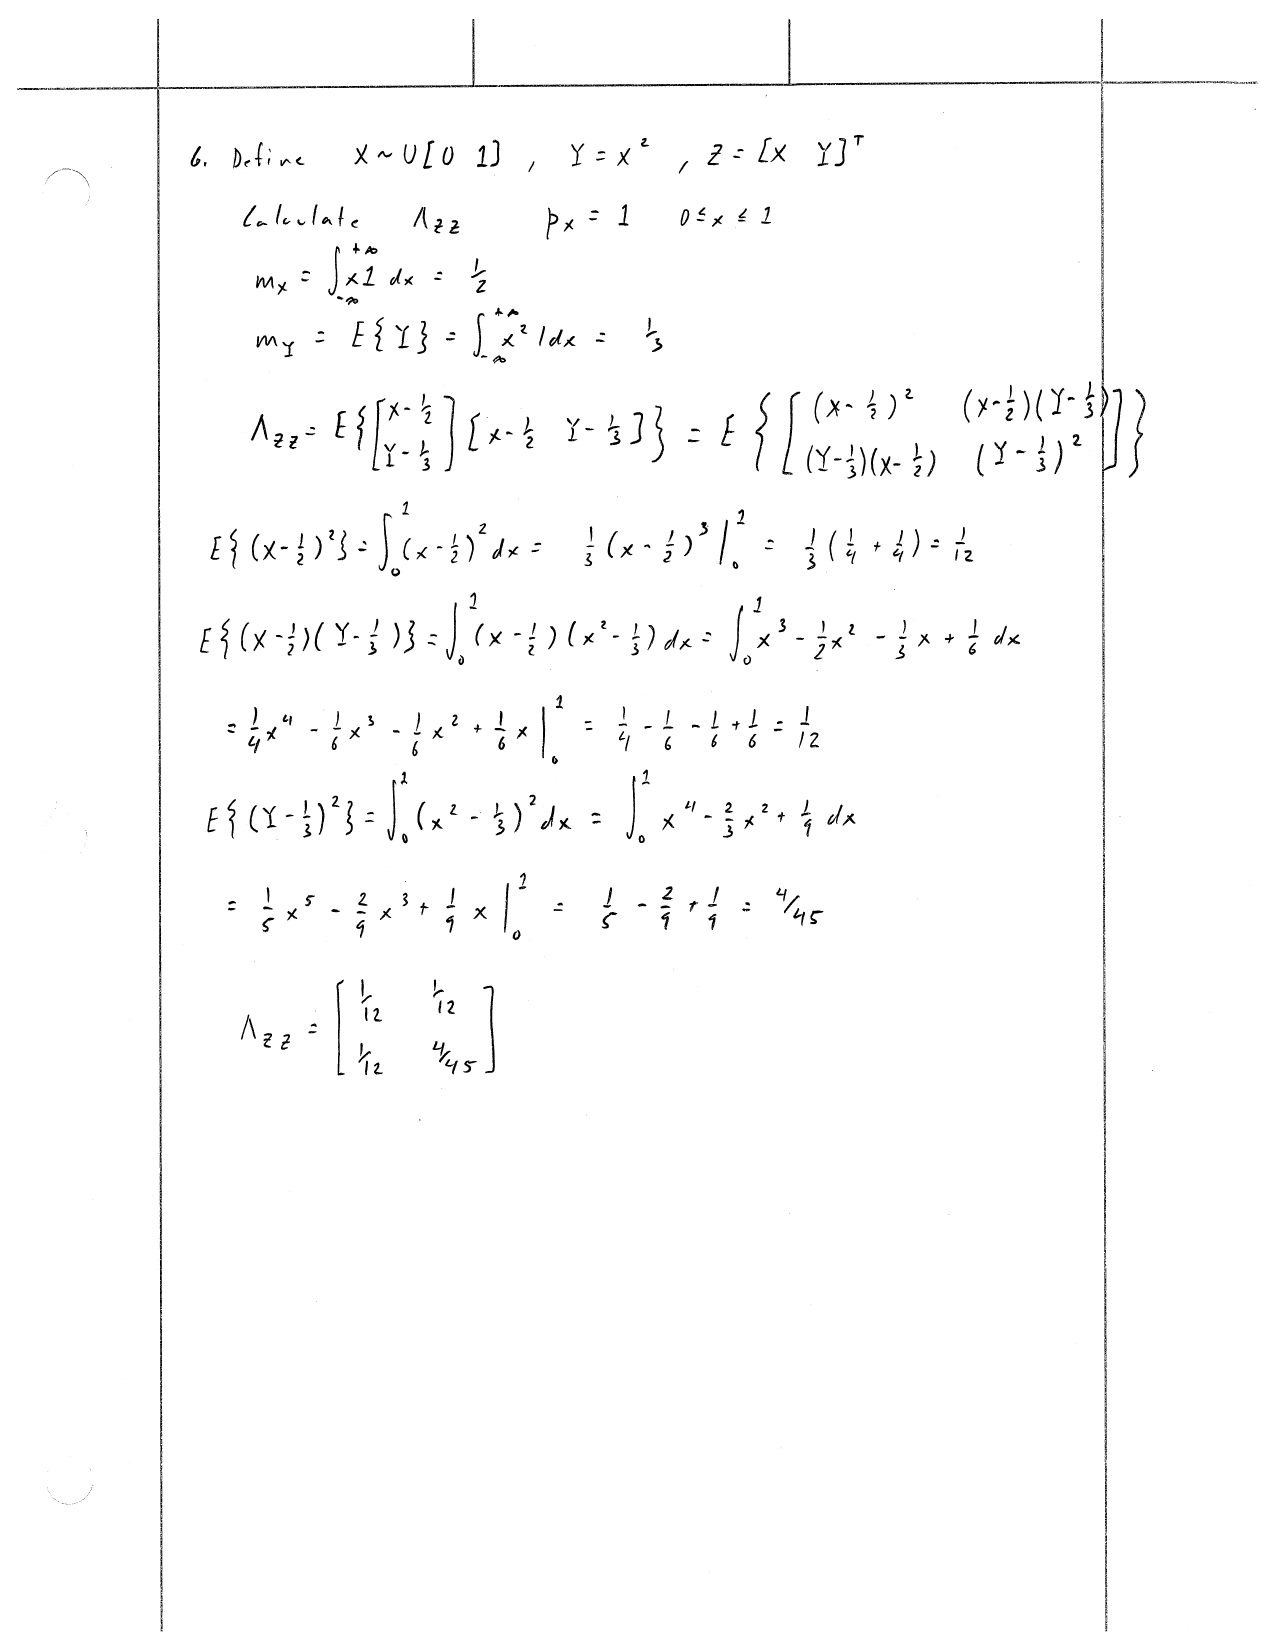 6. Define X ~ U[0 1] , Y = x² , Z = [X Y]ᵀ
Calculate Λ_ZZ p_x = 1 0 ≤ x ≤ 1
m_x = ∫_{-∞}^{+∞} x1 dx = 1/2
m_Y = E{Y} = ∫_{-∞}^{+∞} x² 1dx = 1/3
Λ_ZZ = E{[x-1/2; Y-1/3] [x-1/2 Y-1/3]} = E{[(x-1/2)² (x-1/2)(Y-1/3); (Y-1/3)(x-1/2) (Y-1/3)²]}
E{(x-1/2)²} = ∫_0^1 (x-1/2)² dx = 1/3 (x-1/2)³ |_0^1 = 1/3 (1/4 + 1/4) = 1/12
E{(x-1/2)(Y-1/3)} = ∫_0^1 (x-1/2)(x²-1/3) dx = ∫_0^1 x³ - 1/2 x² - 1/3 x + 1/6 dx
= 1/4 x⁴ - 1/6 x³ - 1/6 x² + 1/6 x |_0^1 = 1/4 - 1/6 - 1/6 + 1/6 = 1/12
E{(Y-1/3)²} = ∫_0^1 (x² - 1/3)² dx = ∫_0^1 x⁴ - 2/3 x² + 1/9 dx
= 1/5 x⁵ - 2/9 x³ + 1/9 x |_0^1 = 1/5 - 2/9 + 1/9 = 4/45
Λ_ZZ = [1/12 1/12; 1/12 4/45]